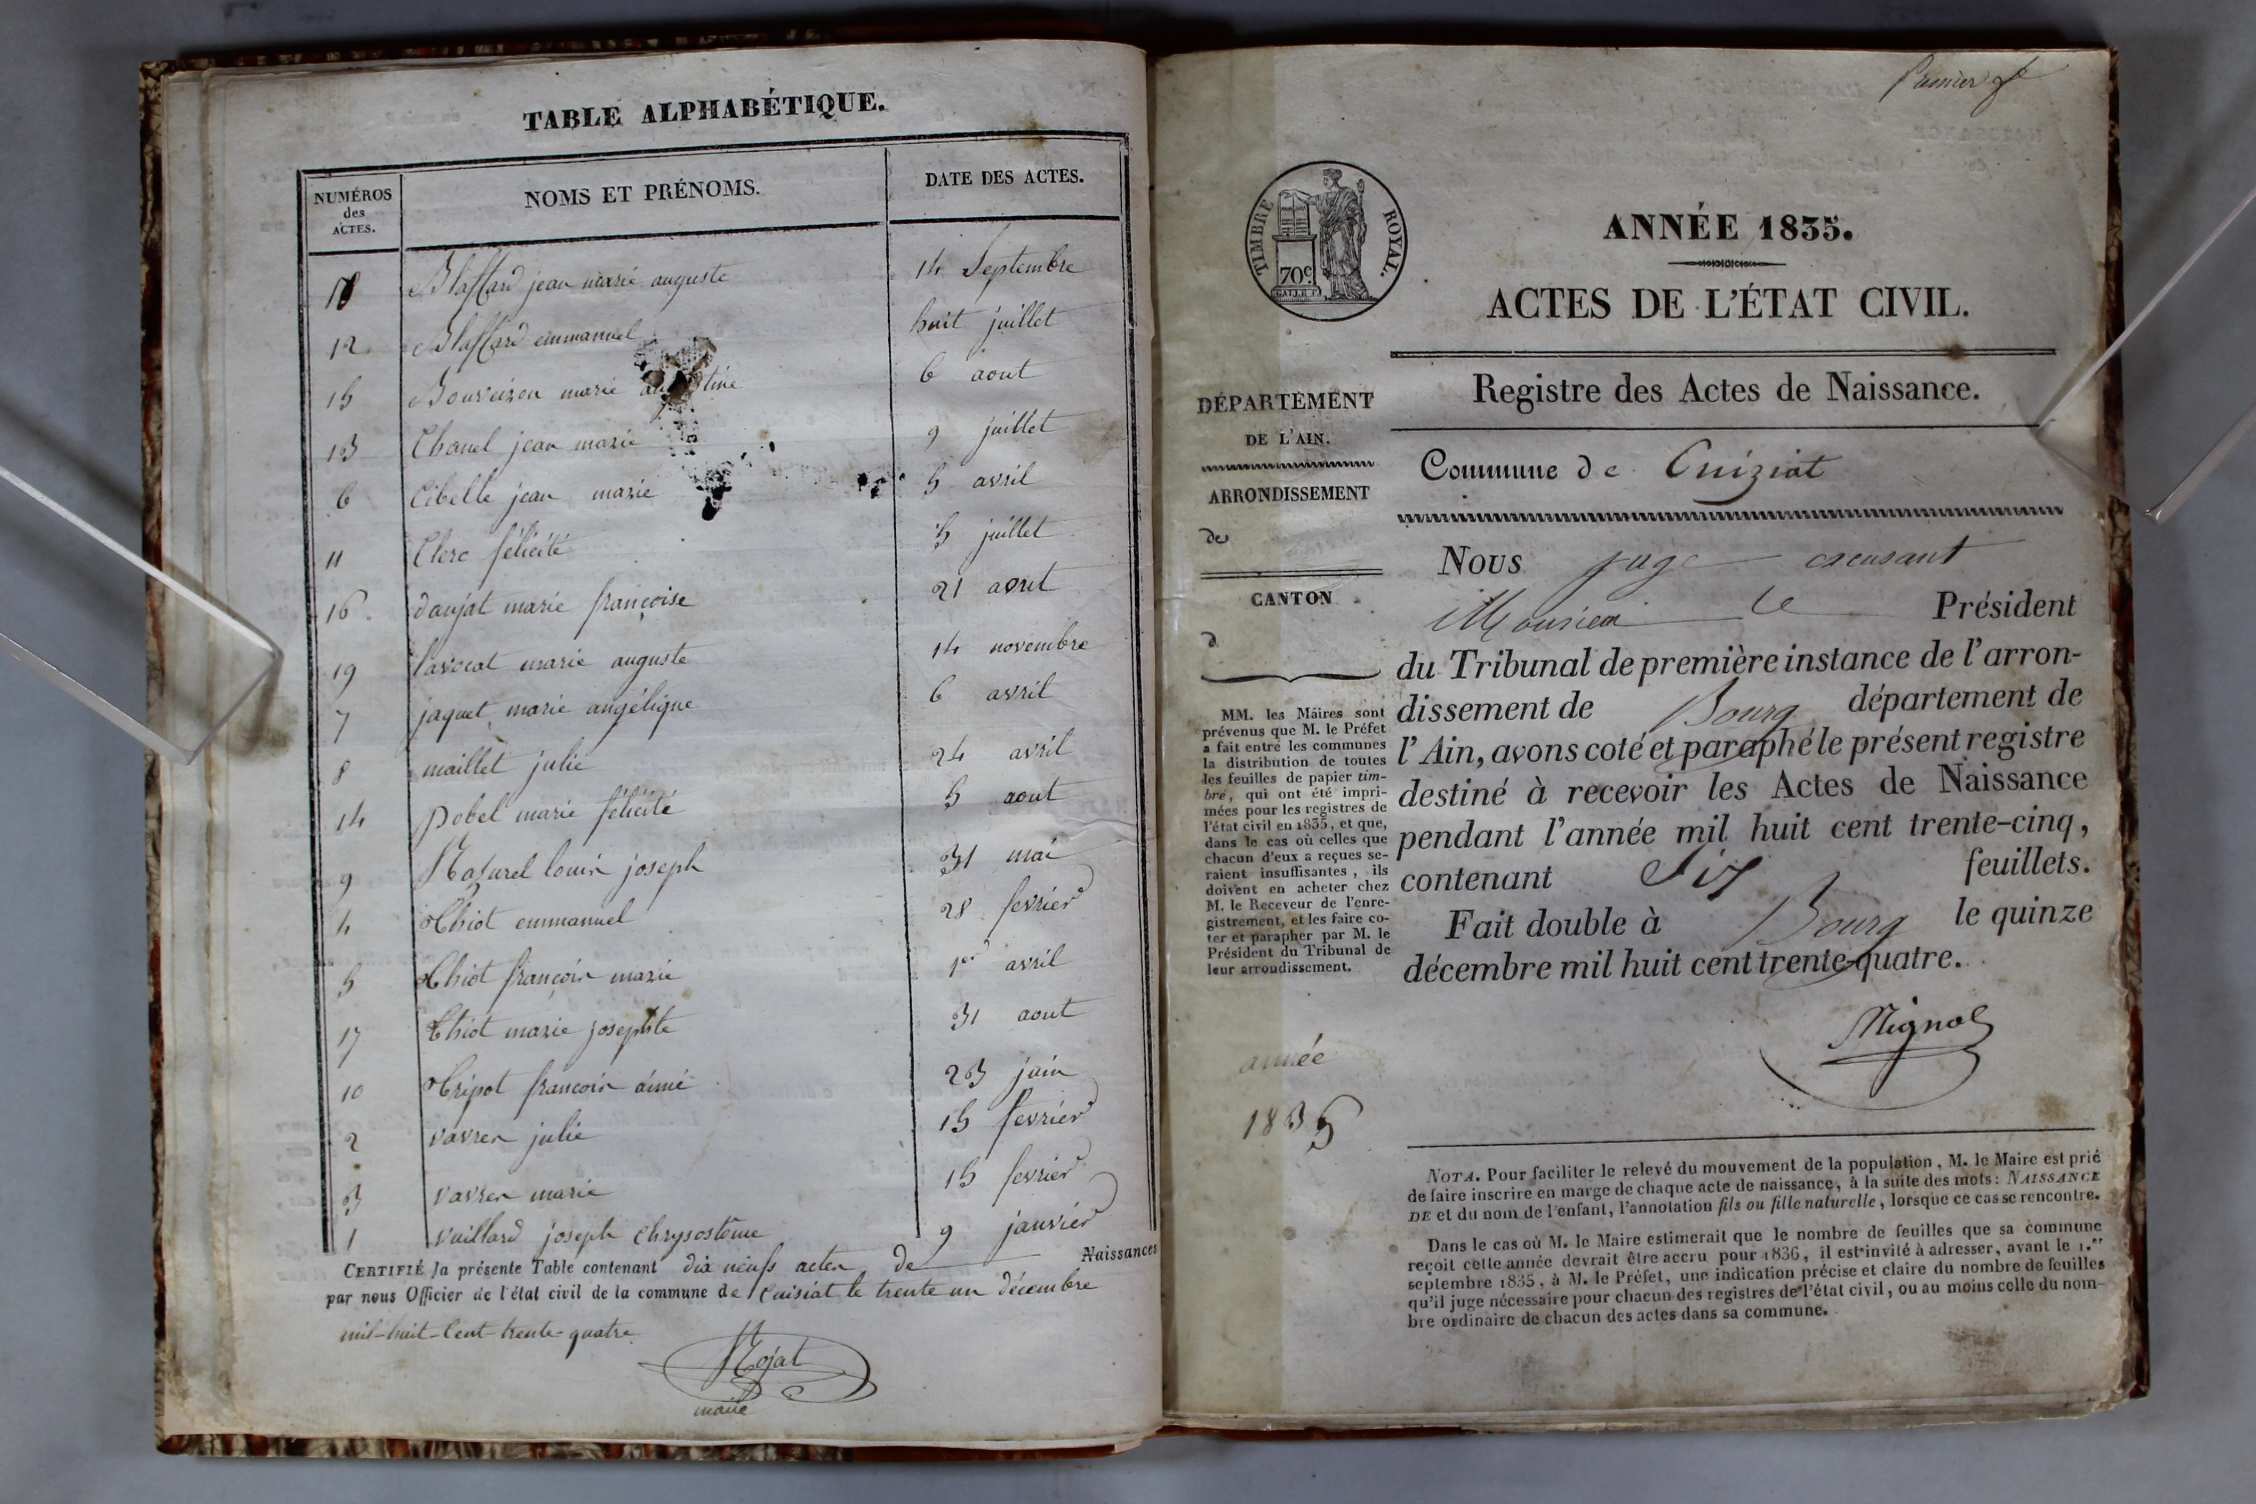 TABLE ALPHABÉTIQUE.
NUMÉROS des ACTES. NOMS ET PRÉNOMS. DATE DES ACTES.
18 Blaffard jean marie auguste 14 Septembre
12 Blaffard emmanuel huit juillet
15 Bouveiron marie 6 aout
13 Chanel jean marie 9 juillet
6 Cibelle jean marie 5 avril
11 Clerc félicité 5 juillet
16 daujat marie françoise 21 aout
19 lavocat marie auguste 14 novembre
7 jaquet marie angélique 6 avril
8 maillet julie 24 avril
14 pobel marie félicité 5 aout
9 Mazurel louis joseph 31 mai
4 Chiot emmanuel 28 fevrier
5 Chiot françois marie 1er avril
17 Chiot marie josephte 31 aout
10 Tripot francois aimé 23 juin
2 vavren julie 15 fevrier
3 vavren marie 15 fevrier
1 vuillard joseph Chrysostôme 9 janvier
CERTIFIÉ la présente Table contenant dix neufs actes de Naissances
par nous Officier de l'état civil de la commune de Cuisiat le trente un décembre
mil-huit-Cent trente-quatre
Nojat
maire
Premier
TIMBRE ROYAL.
70c
ANNÉE 1835.
ACTES DE L'ÉTAT CIVIL.
Registre des Actes de Naissance.
DÉPARTEMENT
DE L'AIN.
ARRONDISSEMENT
de
CANTON
d
MM. les Maires sont
prévenus que M. le Préfet
a fait entre les communes
la distribution de toutes
les feuilles de papier tim-
bré, qui ont été impri-
mées pour les registres de
l'état civil en 1835, et que,
dans le cas où celles que
chacun d'eux a reçues se-
raient insuffisantes, ils
doivent en acheter chez
M. le Receveur de l'enre-
gistrement, et les faire co-
ter et parapher par M. le
Président du Tribunal de
leur arrondissement.
année
1835
Commune de Cuiziat
Nous juge excusant
Monsieur le Président
du Tribunal de première instance de l'arron-
dissement de Bourg département de
l'Ain, avons coté et paraphé le présent registre
destiné à recevoir les Actes de Naissance
pendant l'année mil huit cent trente-cinq,
contenant Six feuillets.
Fait double à Bourg le quinze
décembre mil huit cent trente-quatre.
Mignot
NOTA. Pour faciliter le relevé du mouvement de la population, M. le Maire est prié
de faire inscrire en marge de chaque acte de naissance, à la suite des mots: NAISSANCE
DE et du nom de l'enfant, l'annotation fils ou fille naturelle, lorsque ce cas se rencontre.
Dans le cas où M. le Maire estimerait que le nombre de feuilles que sa commune
reçoit cette année devrait être accru pour 1836, il est invité à adresser, avant le 1.er
septembre 1835, à M. le Préfet, une indication précise et claire du nombre de feuilles
qu'il juge nécessaire pour chacun des registres de l'état civil, ou au moins celle du nom-
bre ordinaire de chacun des actes dans sa commune.